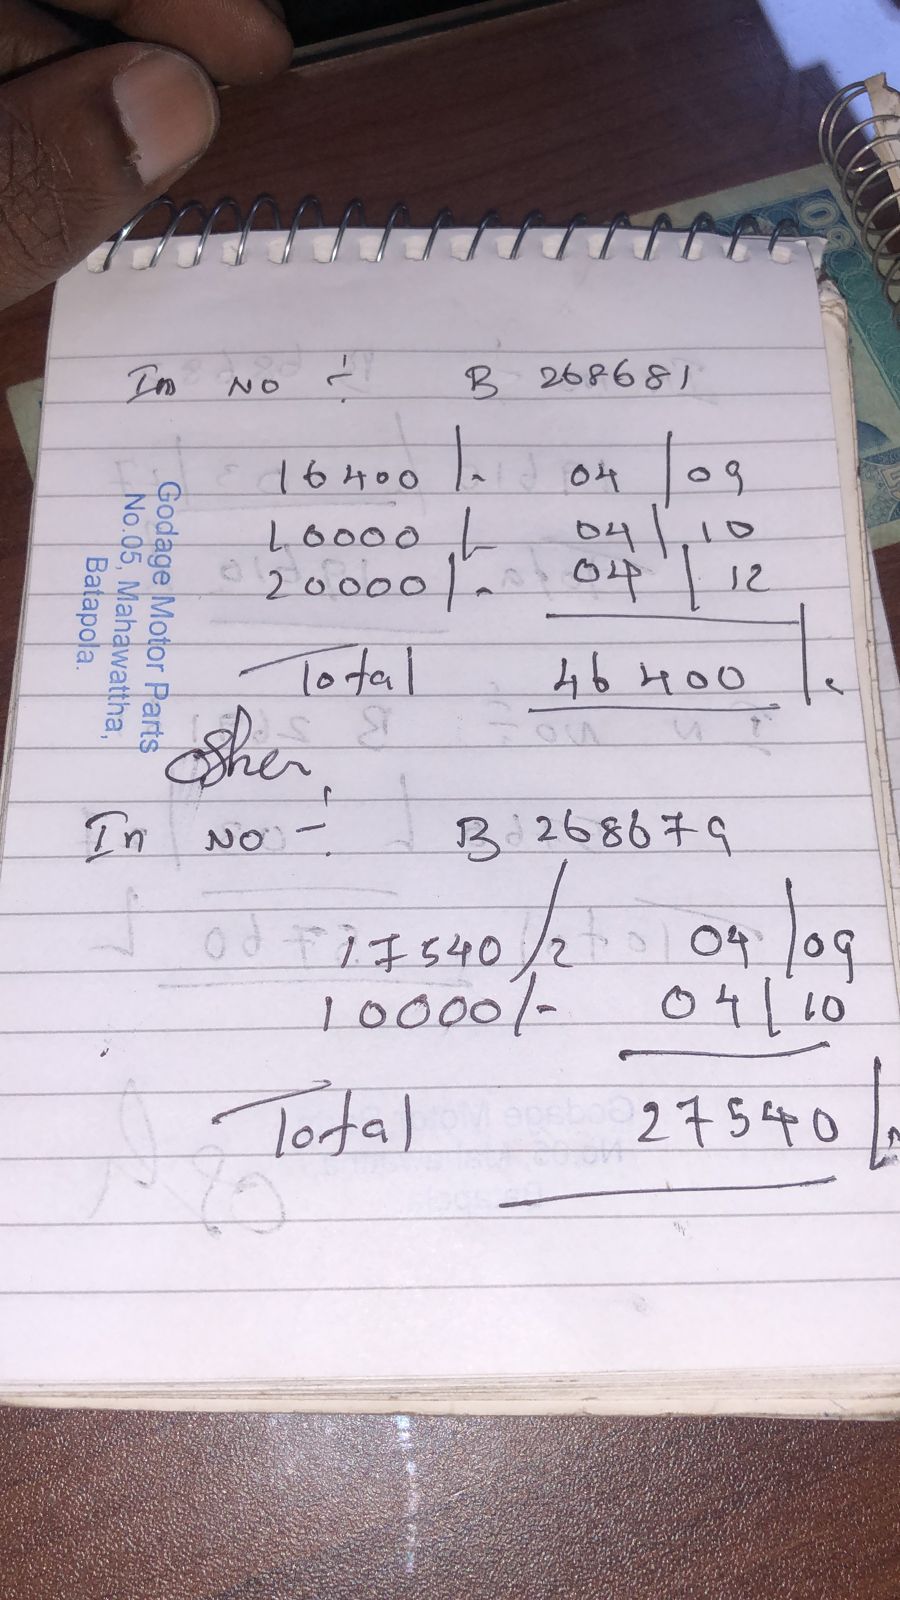 In No ÷ B 268681
16400/- 04/09
10000/- 04/10
20000/- 04/12
Total 46400/-
Godage Motor Parts
No.05, Mahawattha,
Batapola.
In No ÷ B 268679
17540/- 04/09
10000/- 04/10
Total 27540/-